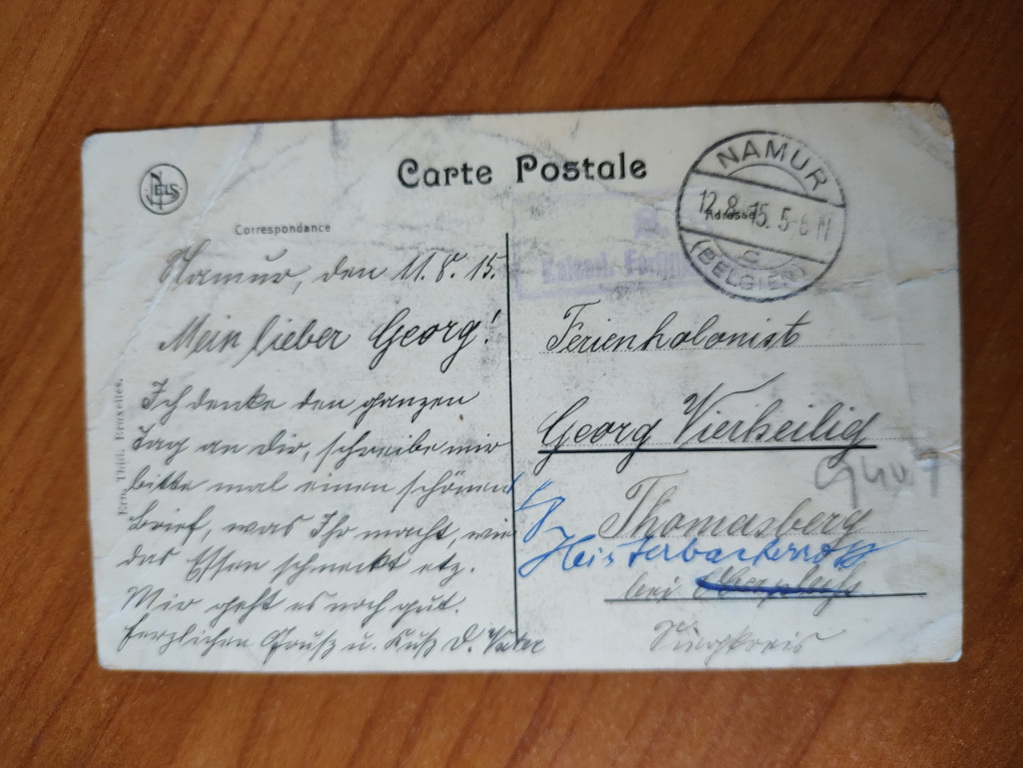 NELS
Carte Postale
Correspondance
Adresse
NAMUR
12.8.15.5-6 N
c
(BELGIEN)
Ern. Thill, Bruxelles.
Namur, den 11.8.15.
Mein lieber Georg!
Ich denke den ganzen
Tag an Dir, schreibe mir
bitte mal einen schönen
Brief, was Ihr macht, wie
das Essen schmeckt etz.
Mir geht es noch gut.
Herzlichen Gruß u. Kuß D. Vater
Ferienkolonist
Georg Vierheilig
Thomasberg
Heisterbacherrott
bei Oberpleis
Siegkreis